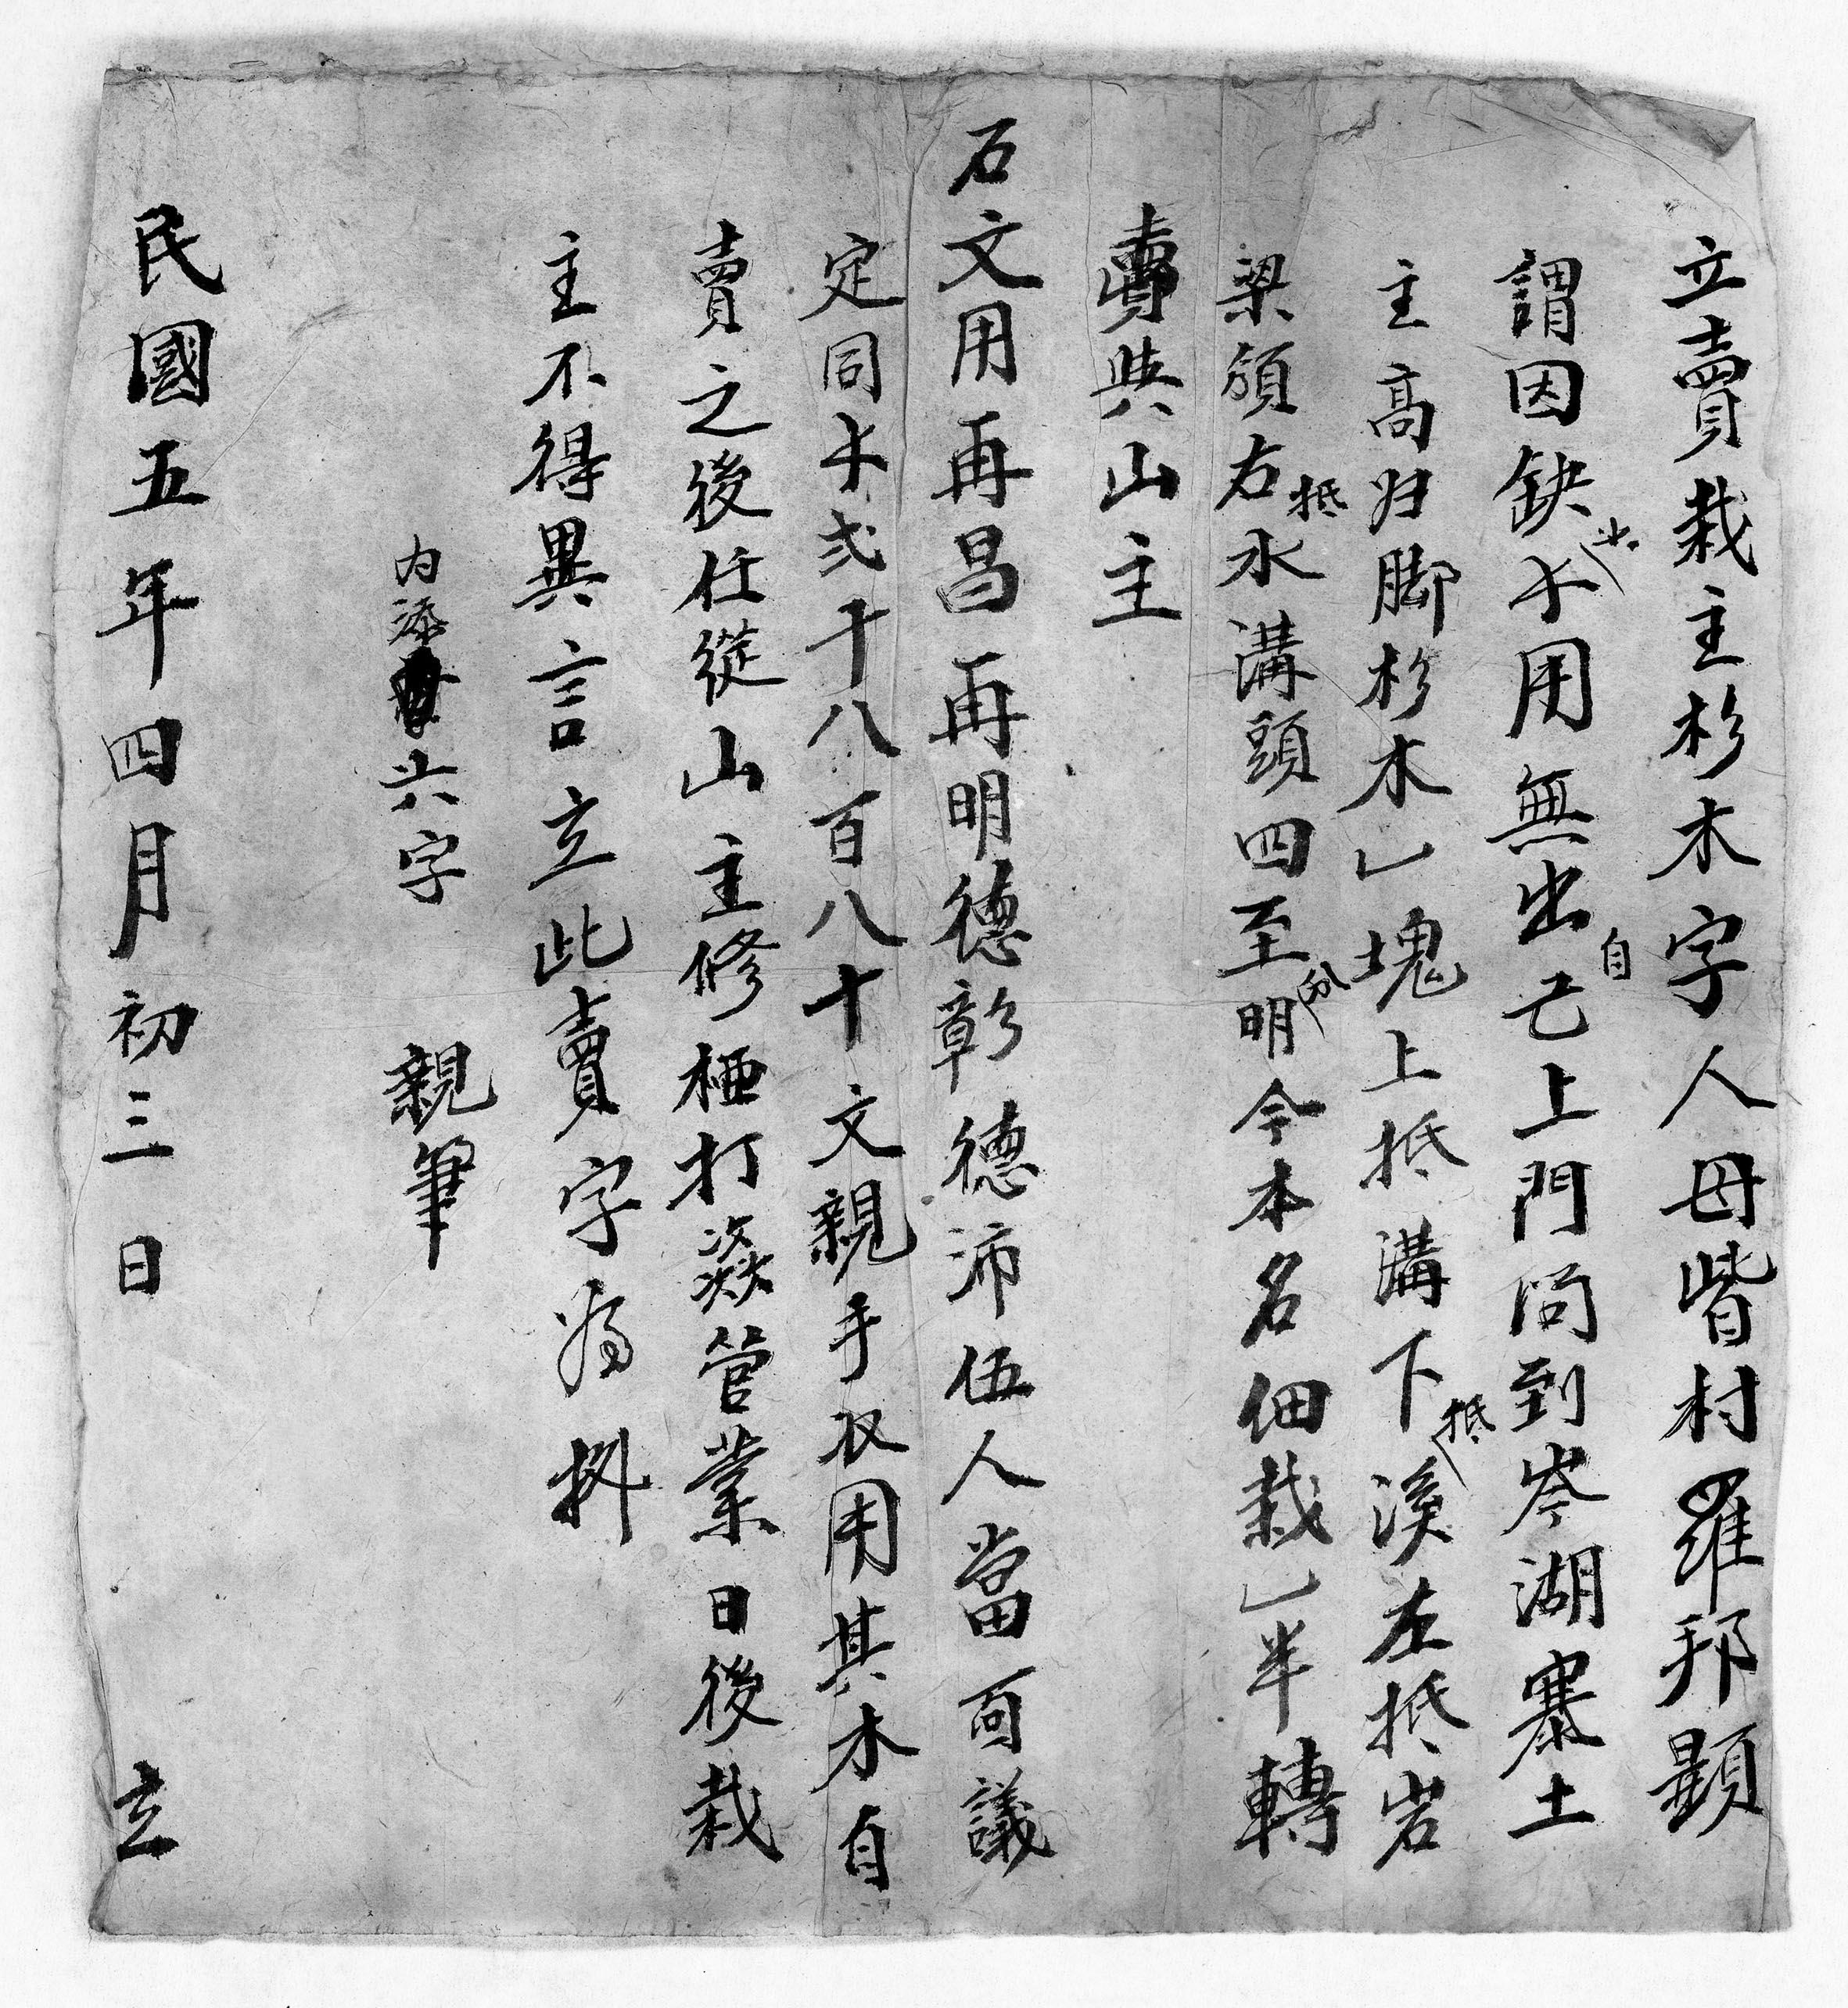 立賣栽主杉木字人毋喈村羅邦顯
謂因缺少用無出自己上門问到岑湖寨土
主高归脚杉木乚塊上抵溝下抵溪左抵岩
梁領右抵水溝頭四至分明今本名佃栽乚半轉
賣與山主
石文用再昌再明德彰德沛伍人當面議
定同弍千八百八十文親手收用其木自
賣之後任從山主修極打滋管業日後栽
主不得異言立此賣字為拠
内添六字　親筆
民國五年四月初三日　立